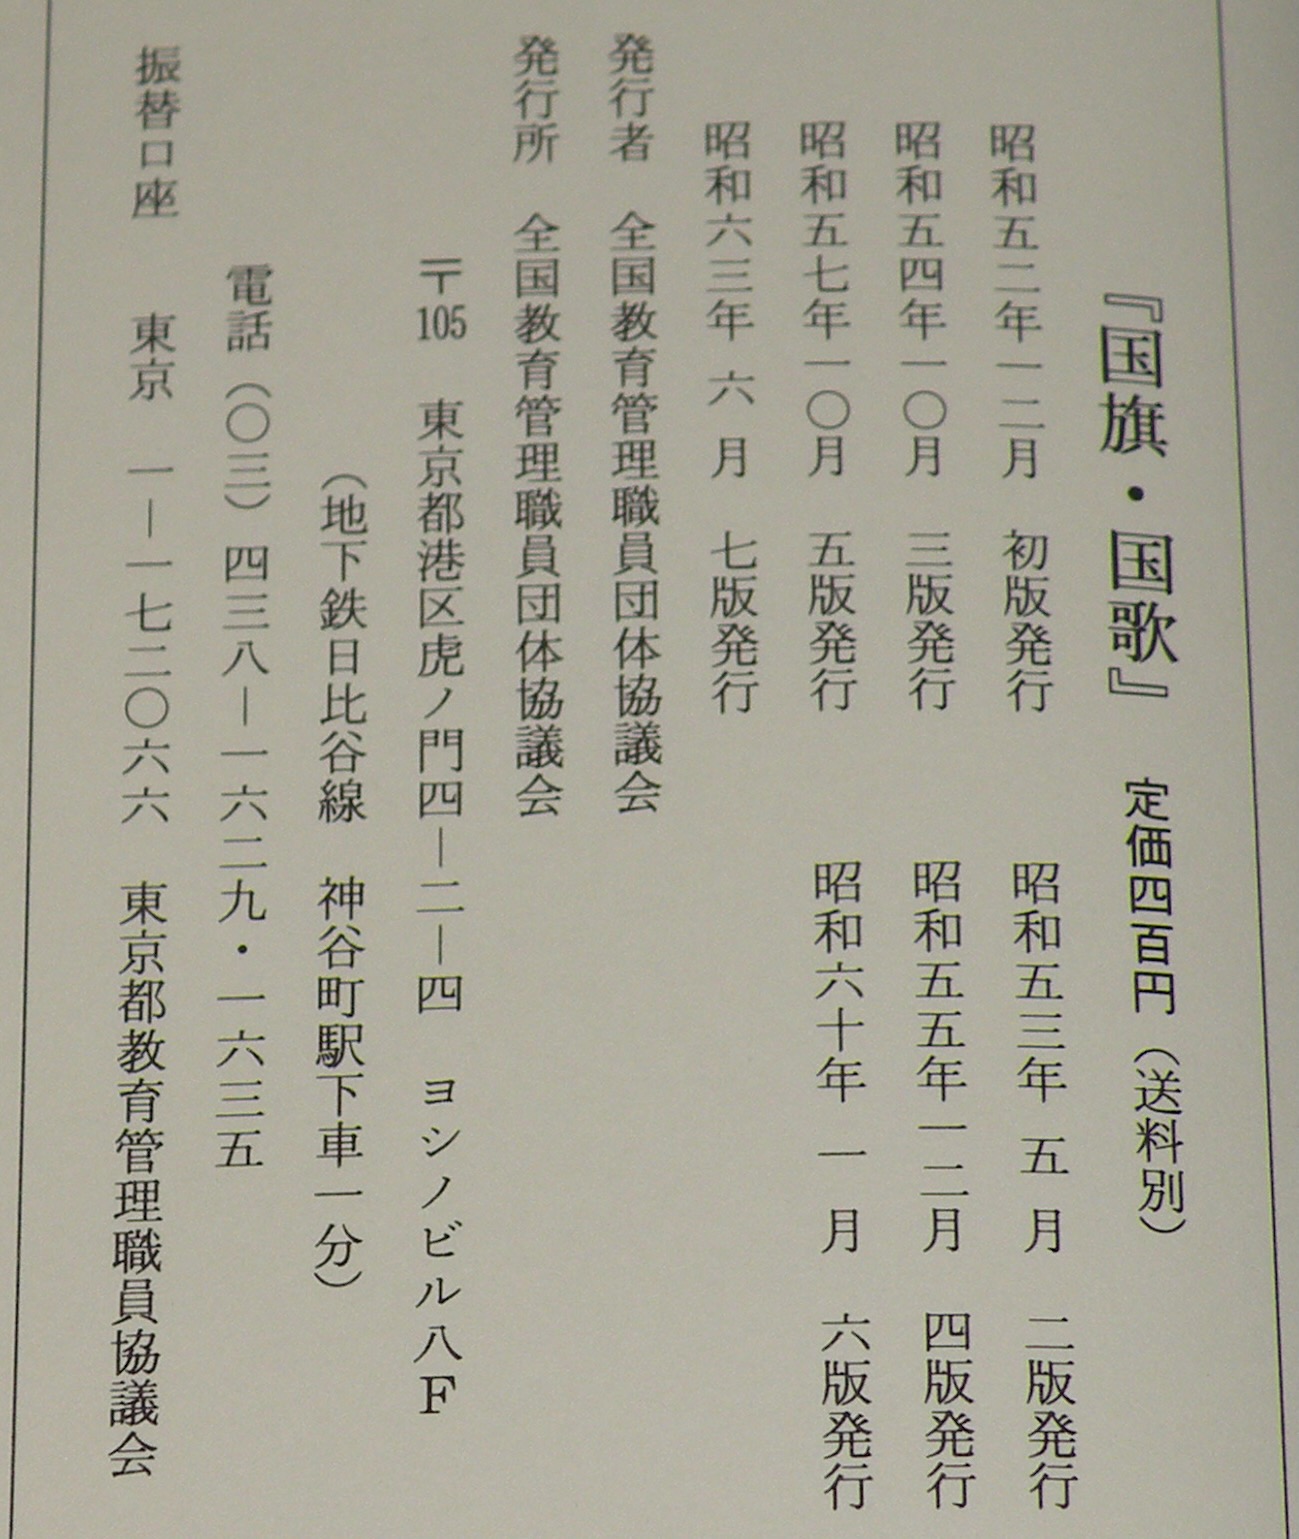 『国旗・国歌』 定価四百円（送料別）
昭和五二年一二月 初版発行 昭和五三年 五月 二版発行
昭和五四年一〇月 三版発行 昭和五五年一二月 四版発行
昭和五七年一〇月 五版発行 昭和六十年 一月 六版発行
昭和六三年 六月 七版発行
発行者 全国教育管理職員団体協議会
発行所 全国教育管理職員団体協議会
〒105 東京都港区虎ノ門四－二－四 ヨシノビル八F
（地下鉄日比谷線 神谷町駅下車一分）
電話（〇三）四三八－一六二九・一六三五
振替口座 東京 一－一七二〇六六 東京都教育管理職員協議会